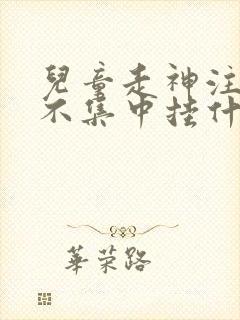 兒童走神注
不集中挂什
華荣路